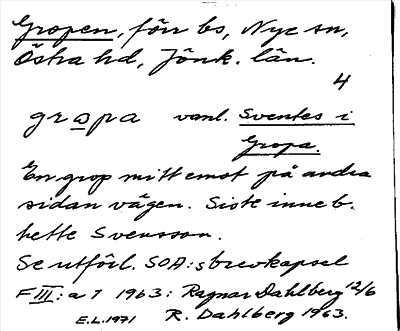 Gropen, förr bs, Nye sn,
Östra hd, Jönk. län.
4
gropa vanl. Sventes i
Gropa.
En grop mitt emot på andra
sidan vägen. Siste inneb.
hette Svensson.
Se utförl. SOA:s brevkapsel
F III: a 7 1963: Ragnar Dahlberg 12/6
E.L. 1971 R. Dahlberg 1963.